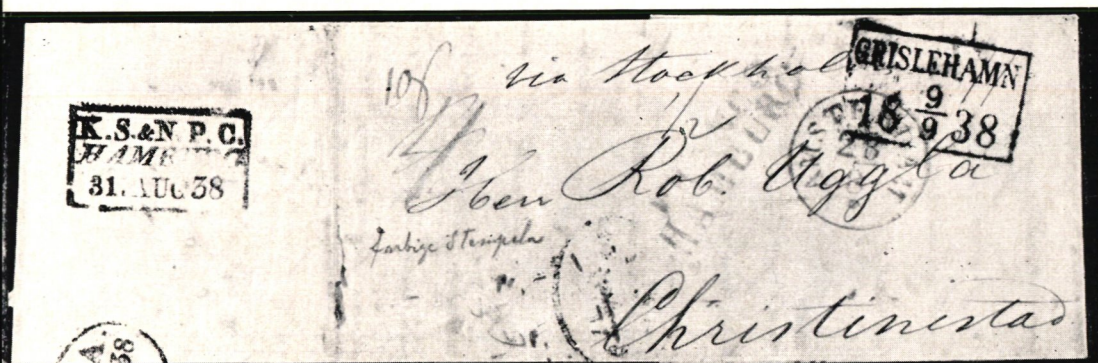 K.S.&N.P.C.
HAMBURG
31. AUG 38
108
via Stockholm
GRISLEHAMN
18 9/9 38
28
HAMBURG
Herr Rob Uggla
farbige Stempeln
Christinestad
A.
38